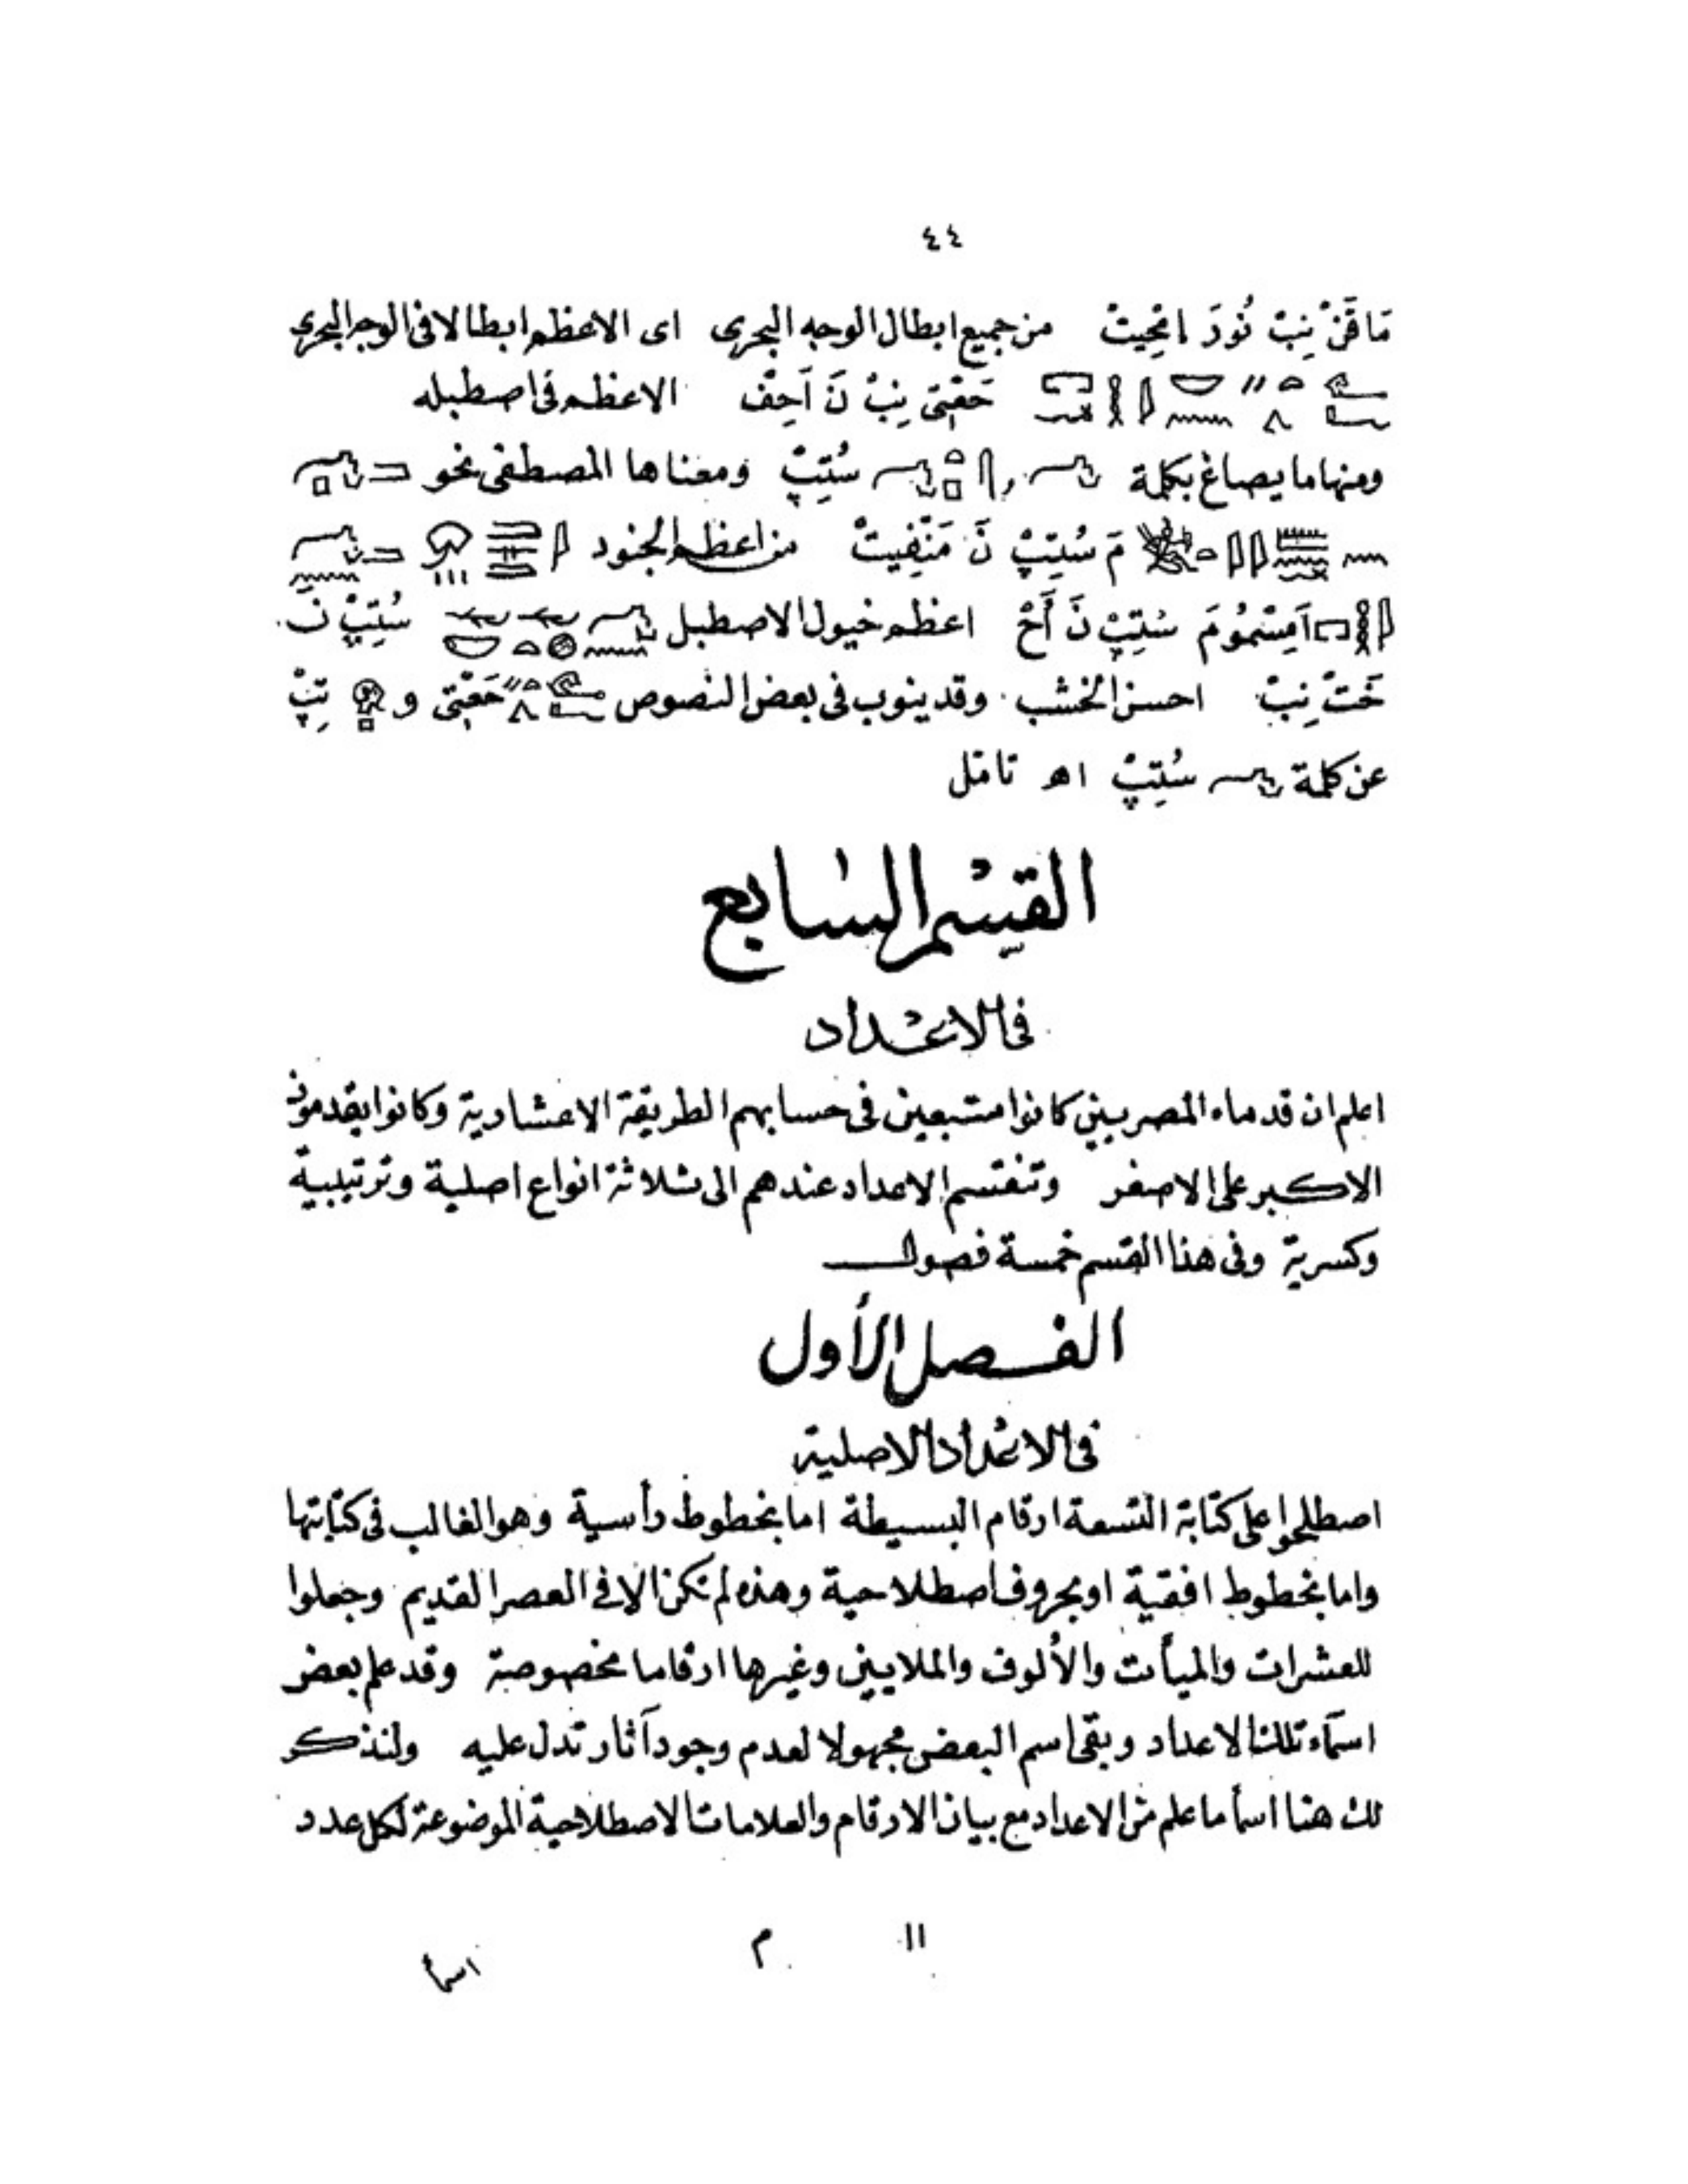 ٤٤
مَا قَنْ نِبْ نُودَ امْحِيتْ من جميع ابطال الوجه البحرى اى الاعظم ابطالا فى الوجه البحرى
حَقْتِى نِبْ نَ آحِفْ الاعظم فى اصطبله
ومنها ما يصاغ بكلمة سُتِبْ ومعناها المصطفى نحو
مَ سُتِبْ نَ مَنْفِيتْ من اعظم الجنود
اَمِسْمُومَ سُتِبْ نَ أَحْ اعظم خيول الاصطبل سُتِبْ نَ
خَتْ نِبْ احسن الخشب وقد ينوب فى بعض النصوص حَقْتِى و تِبْ
عن كلمة سُتِبْ اه تامّل
القِسْم السّابع
فى الاعْداد
اعلم ان قدماء المصريين كانوا متبعين فى حسابهم الطريقة الاعشارية وكانوا يقدمون
الاكبر على الاصغر وتنقسم الاعداد عندهم الى ثلاثة انواع اصلية وترتيبية
وكسرية وفى هذا القسم خمسة فصول
الفصل الأول
فى الاعْداد الاصلية
اصطلحوا على كتابة التسعة ارقام البسيطة اما بخطوط رأسية وهو الغالب فى كتابتها
واما بخطوط افقية او بحروف اصطلاحية وهذه لم تكن الا فى العصر القديم وجعلوا
للعشرات والميأت والألوف والملايين وغيرها ارقاما مخصوصة وقد علم بعض
اسمآء تلك الاعداد وبقى اسم البعض مجهولا لعدم وجود آثار تدل عليه ولنذكر
لك هنا اسأ ما علم من الاعداد مع بيان الارقام والعلامات الاصطلاحية الموضوعة لكل عدد
١١ م اسمأ